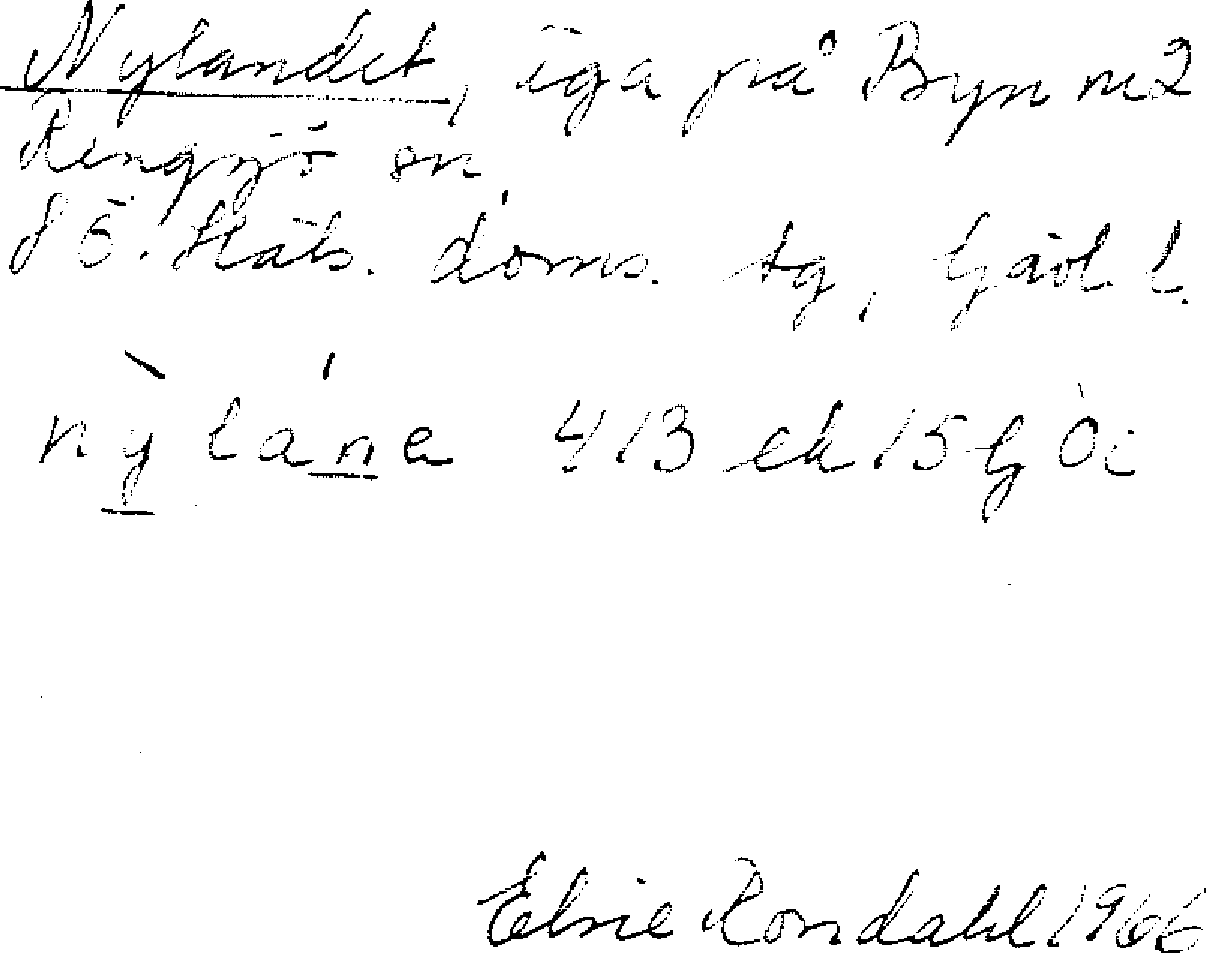 Nylandet, äga på Byn nr 2
Rengsjö sn
SÖ. Häls. doms. tg, Gävl. l.
nỳláne 413 ek 15 G Öi
Elsie Rondahl 1966